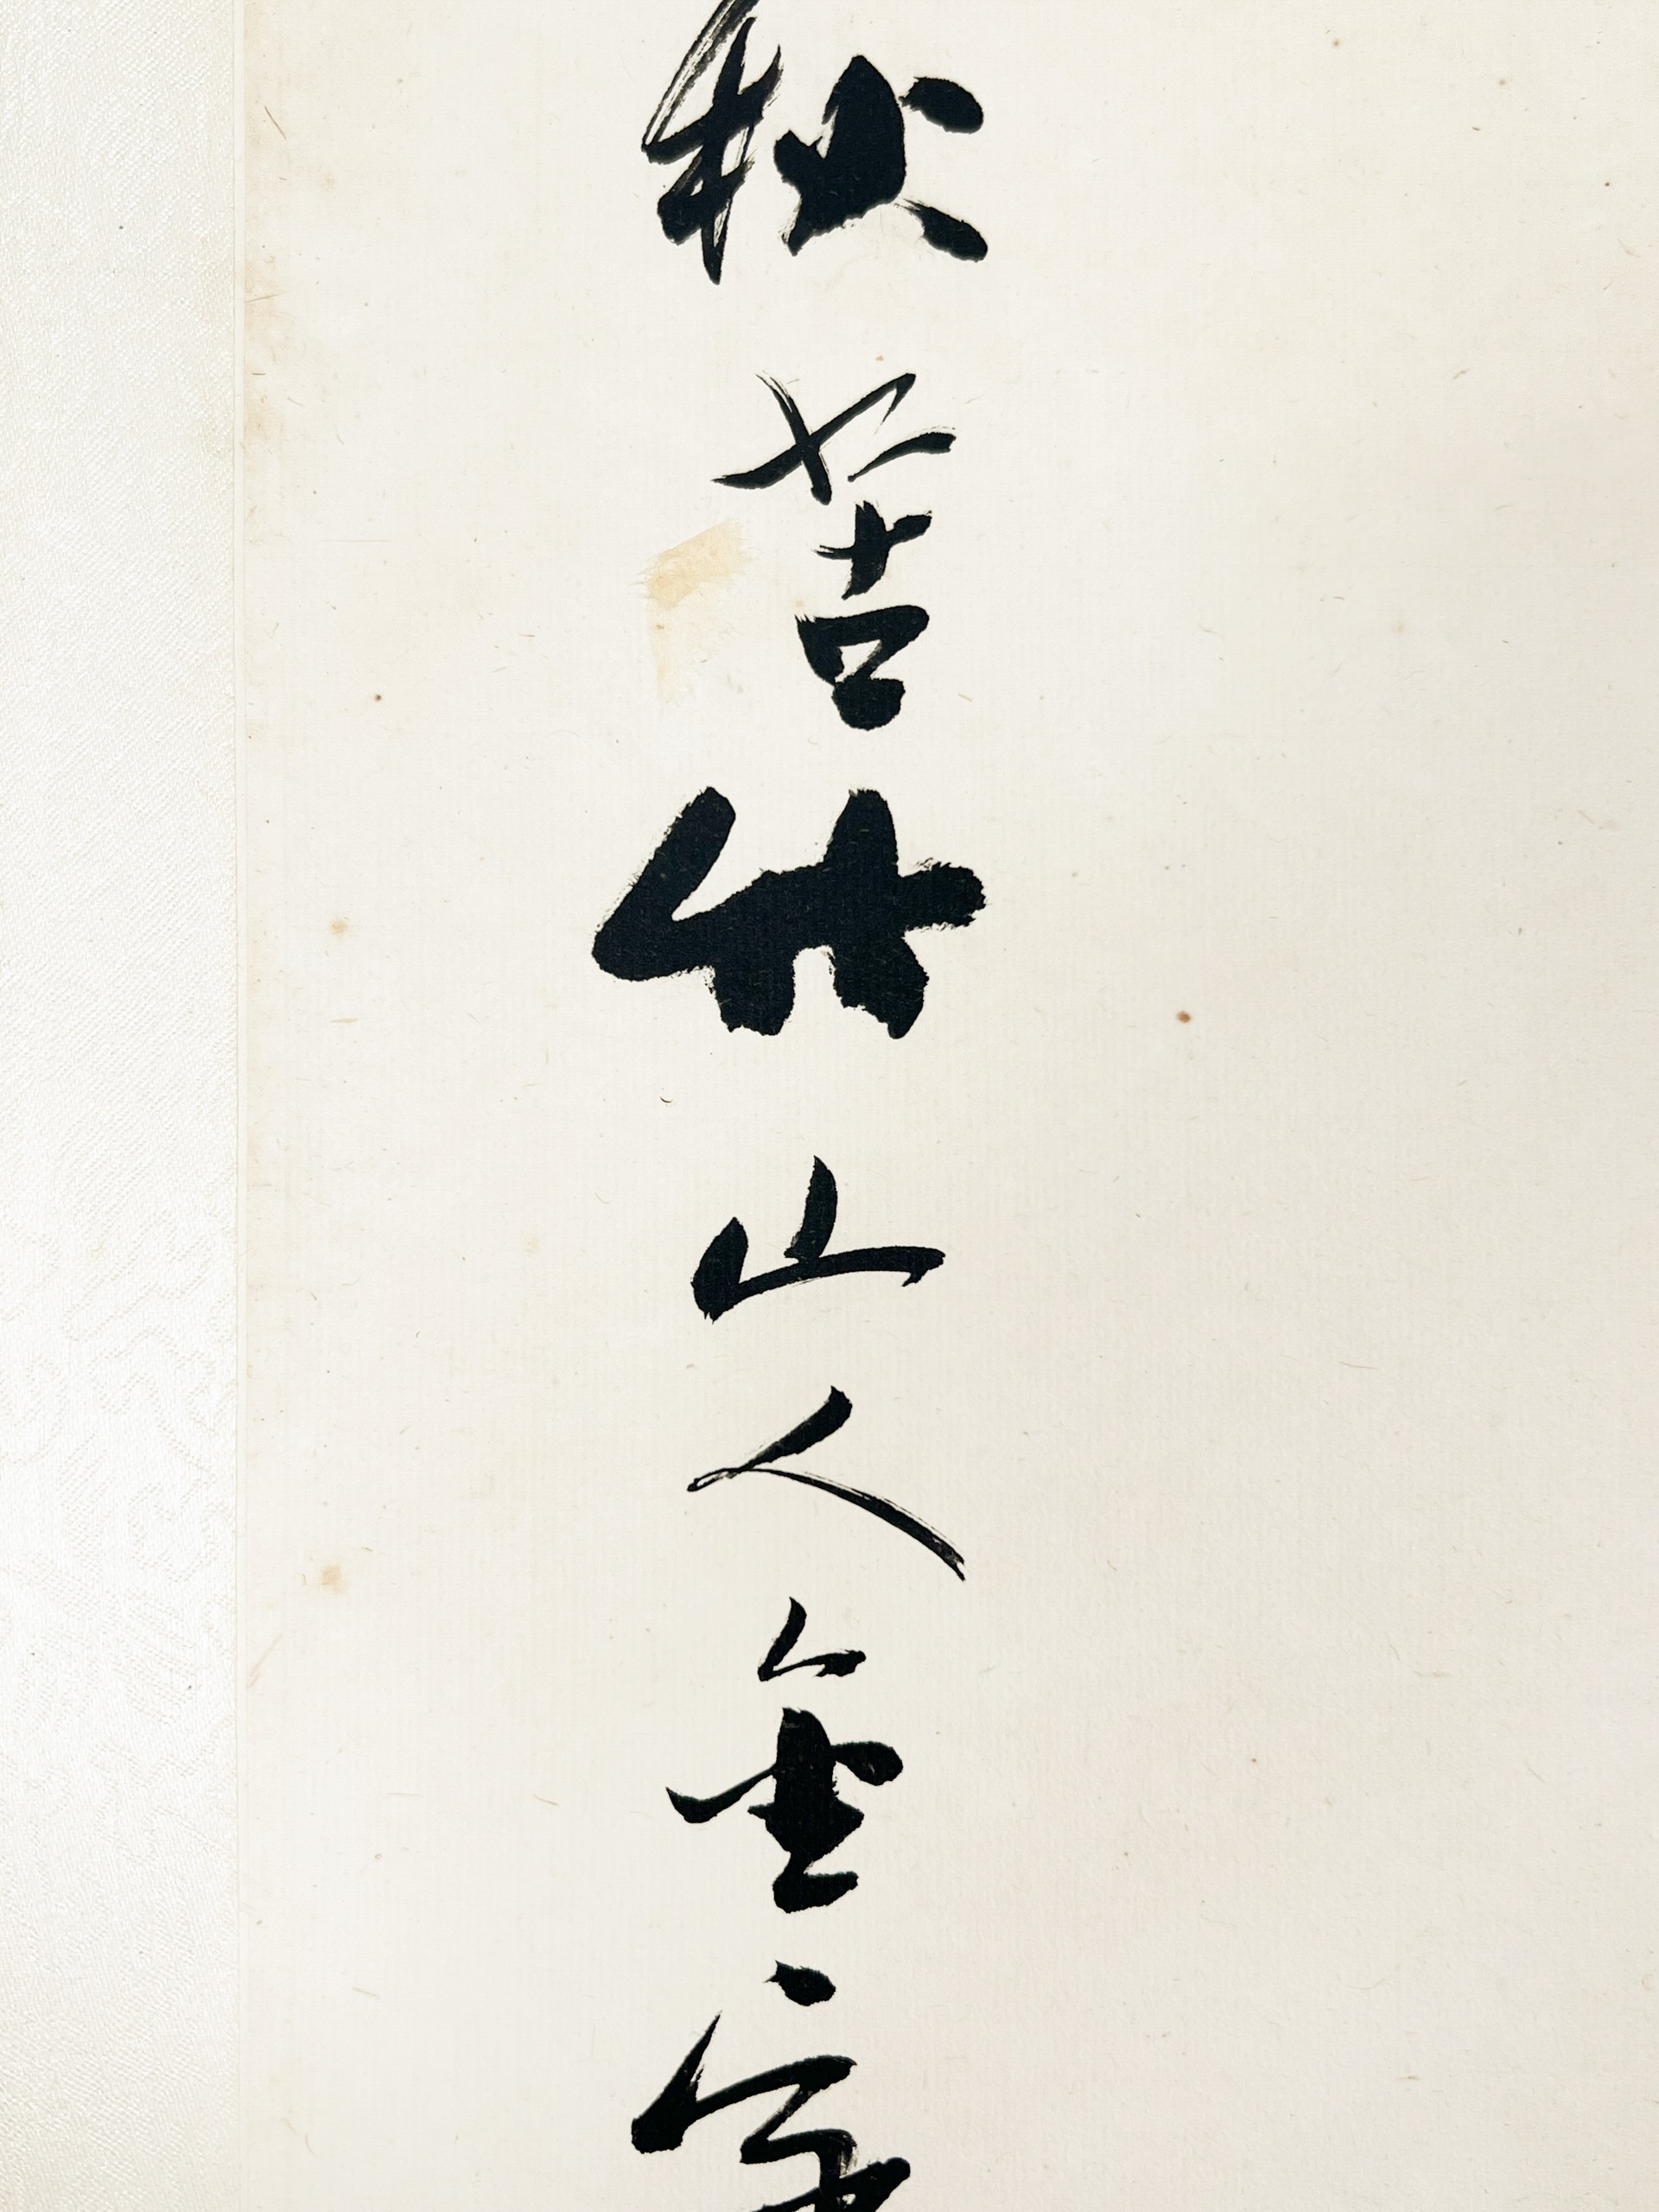 秋苦竹山人金